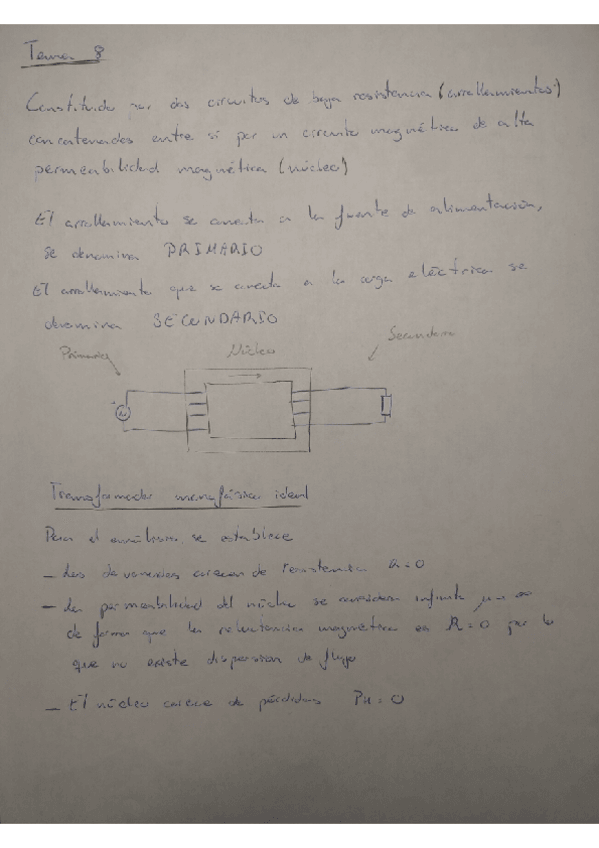 Tema 8
Constituido por dos circuitos de baja resistencia (arrollamientos)
concatenados entre si por un circuito magnético de alta
permeabilidad magnética (núcleo)
El arrollamiento se conecta a la fuente de alimentación,
se denomina PRIMARIO
El arrollamiento que se conecta a la carga eléctrica se
denomina SECUNDARIO
Primario Núcleo Secundario
Transformador monofásico ideal
Para el análisis se establece
- Los devanados carecen de resistencia R=0
- La permeabilidad del núcleo se considera infinita μ=∞
de forma que la reluctancia magnética es R=0 por lo
que no existe dispersion de flujo
- El núcleo carece de pérdidas PH=0